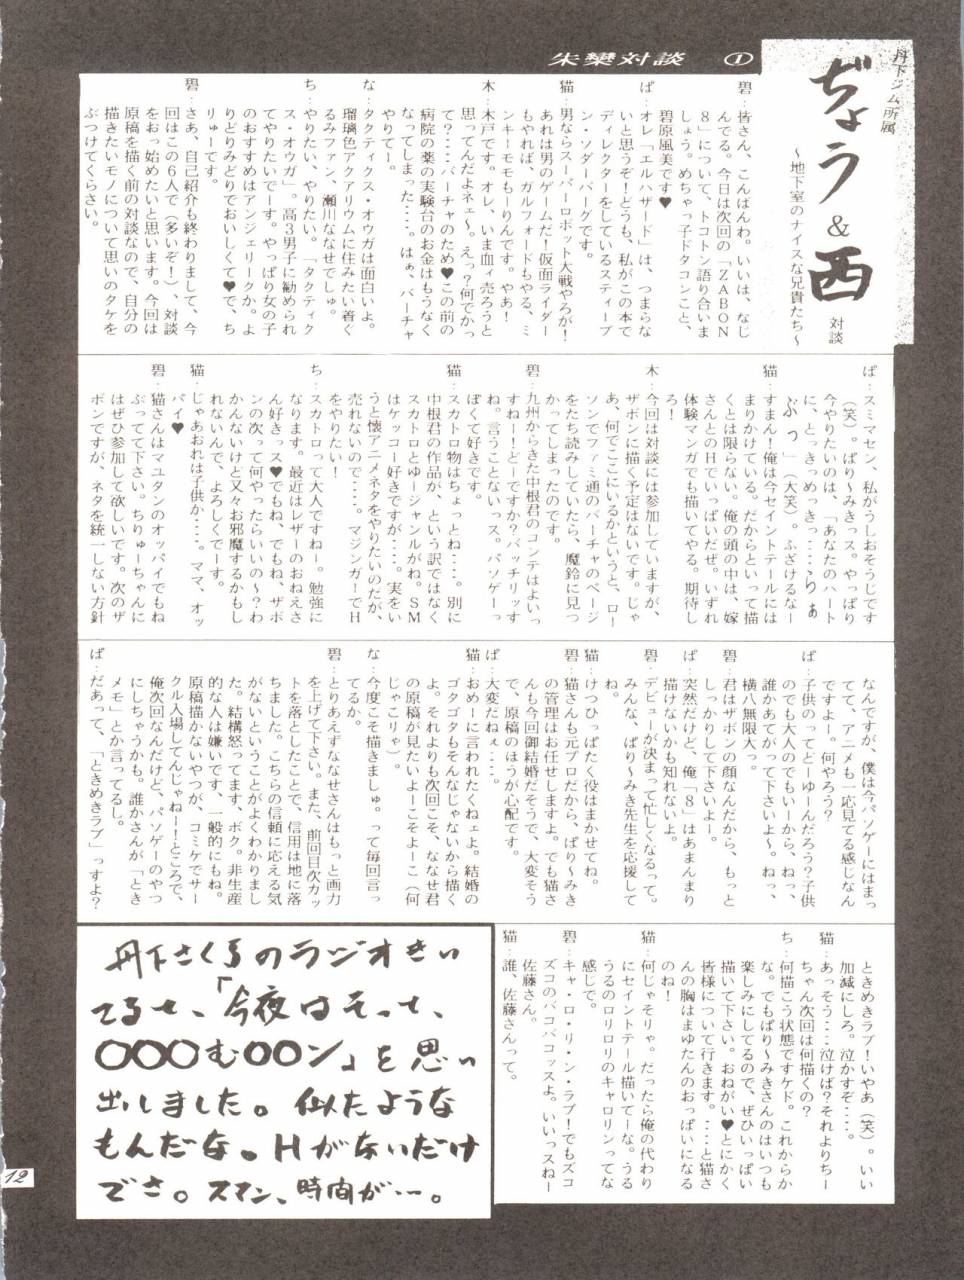 朱欒対談 ①
丹下ジム所属
ぢょう＆西 対談
〜地下室のナイスな兄貴たち〜
碧：皆さん、こんばんわ。いいは、なじ
んでる。今日は次回の「ZABON
8」について、トコトン語り合いま
しょう。めちゃっ子ドタコンこと、
碧原風美です♥
ぱ：オレ「エルハザード」は、つまらな
いと思うぞ！どうも、私がこの本で
ディレクターをしているスティーブ
ン・ソダーバーグです。
猫：男ならスーパーロボット大戦やろが！
あれは男のゲームだ！仮面ライダー
もやれば、ガルフォードもやる、ミ
ンキーモモもーりんです。やあ！
木：木戸です。オレ、いま血ィ売ろうと
思ってんだよネェ〜。えっ？何でかっ
て？‥‥バーチャのため♥この前の
病院の薬の実験台のお金はもうなく
なってしまった‥‥。はぁ、バーチャ
やりてー。
な：タクティクス・オウガは面白いよ。
瑠璃色アクアリウムに住みたい着ぐ
るみファン、瀬川ななせでしゅ。
ち：やりたい、やりたい。「タクティク
ス・オウガ」。高3男子に勧められ
てやりたいでーす。やっぱり女の子
のおすすめはアンジェリークか。よ
りどりみどりでおいしくて♥で、ち
りゅーです。
碧：さあ、自己紹介も終わりまして、今
回はこの6人で（多いぞ！）、対談
をおっ始めたいと思います。今回は
原稿を描く前の対談なので、自分の
描きたいモノについて思いのタケを
ぶつけてくらさい。
ぱ：スミマセン、私がうしおそうじです
（笑）。ぱり〜みきっス。やっぱり
今やりたいのは、「あなたのハート
に、とっきっめっきっ‥‥らぁ
ぶっっ」（大笑）。ふざけるなー
猫：すまん！俺は今セイントテールには
まりかけている。だからといって描
くとは限らない。俺の頭の中は、嫁
さんとのHでいっぱいだぜ。いずれ
体験マンガでも描いてやる。期待し
ろ！
木：今回は対談には参加していますが、
ザボンに描く予定はないです。じゃ
あ、何でここにいるかというと、ロー
ソンでファミ通のバーチャのページ
をたち読みしていたら、魔鈴に見つ
かってしまったのです。
碧：九州からきた中根君のコンテはよいっ
すねー！どーですか？バッチリッす
ね。言うことないっス。パソゲーっ
ぽくて好きです。
猫：スカトロ物はちょっとね‥‥。別に
中根君の作品が、という訳ではなく
スカトロとゆージャンルがね。SM
はケッコー好きですが‥‥。実をい
うと懐アニメネタをやりたいのだが、
売れないので‥‥。マジンガーでH
をやりたい！
ち：スカトロって大人ですねー。勉強に
なります。最近はレザーのおねえさ
ん好きっス♥でもね、でもね、ザボ
ンの次って何やったらいいの〜？わ
かんないけど又々お邪魔するかもし
れないんで、よろしくでーす。
猫：じゃあおれは子供か‥‥。ママ、オッ
パイ♥
碧：猫さんはマユタンのオッパイでもね
ぶってて下さい。ちりゅーちゃんに
はぜひ参加して欲しいです。次のザ
ボンですが、ネタを統一しない方針
なんですが、僕は今パソゲーにはまっ
てて、アニメも一応見てる感じなん
ですよー。何やろう？
ぱ：子供のってどーゆーんだろう？子供
のでも大人のでもいーから、ねっ、
誰かあてがって下さいよ〜。ねっ、
横八無限大。
碧：君はザボンの顔なんだから、もっと
しっかりして下さいよー。
ぱ：突然だけど、俺「8」はあまんまり
描けないかも知れないよ。
碧：デビューが決まって忙しくなるって。
みんな、ぱり〜みき先生を応援して
ね。
猫：けつひっぱたく役はまかせてね。
碧：猫さんも元プロだから、ぱり〜みき
の管理はお任せしますよ。でも猫さ
んも今回御結婚だそうで、大変そう
で、原稿のほうが心配です。
ぱ：大変だねぇ‥‥。
猫：おめーに言われたくねェよ。結婚の
ゴタゴタもそんなじゃないから描く
よ。それよりも次回こそ、ななせ君
の原稿が見たいよーこそよーこ（何
じゃこりゃ）。
な：今度こそ描きましゅ。って毎回言っ
てるか。
碧：とりあえずななせさんはもっと画力
を上げて下さい。また、前回目次カッ
トを落としたことで、信用は地に落
ちました。こちらの信頼に応える気
がないということがよくわかりまし
た。結構怒ってます、ボク。非生産
的な人は嫌いです、一般的にもね。
原稿描かないやつが、コミケでサー
クル入場してんじゃねー！ところで、
俺次回なんだけど、パソゲーのやつ
にしちゃうかも。誰かさんが「とき
メモ」とか言ってるし。
ぱ：だあって、「ときめきラブ」っすよ？
ときめきラブ！いやあ（笑）。いい
加減にしろ。泣かすぞ‥‥。
猫：あっそう‥‥泣けば？それよりちー
ちゃん次回は何描くの？
ち：何描こう状態ですケド。これからか
な。でもぱり〜みきさんのはいつも
楽しみにしてるので、ぜひいっぱい
描いて下さい。おねがい♥とにかく
皆様について行きます。‥‥と猫さ
んの胸はまゆたんのおっぱいになる
のね！
猫：何じゃそりゃ。だったら俺の代わり
にセイントテール描いてーな。うる
うるのロリロリのキャロリンってな
感じで。
碧：キャ・ロ・リ・ン・ラブ！でもズコ
ズコのバコバコッスよ。いいっスねー
佐藤さん。
猫：誰、佐藤さんって。
丹下さくらのラジオきい
てるせ、「今夜はそっと、
〇〇〇む〇〇ン」を思い
出しました。似たような
もんだな。Hがないだけ
でさ。スマン、時間が…。
12